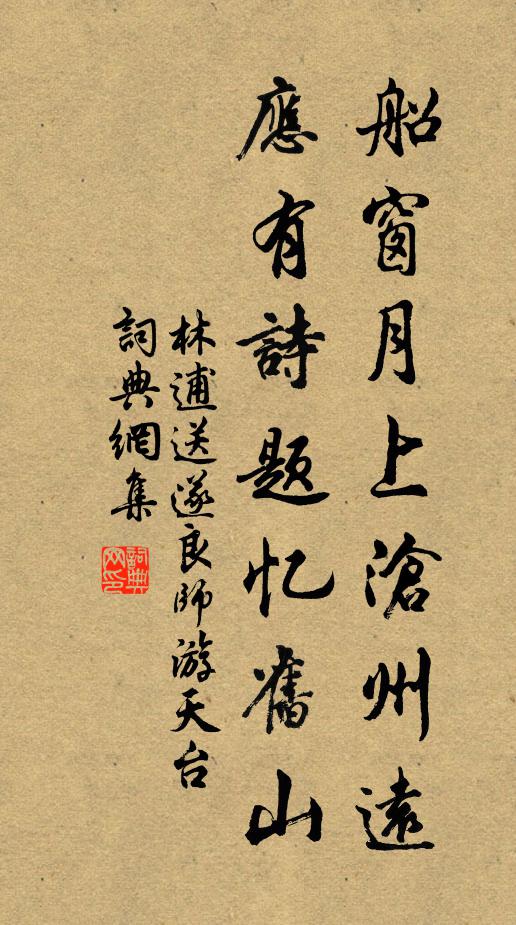 船窗月上滄州遠
應有詩题忆舊山
林逋送遂良師游天台
詞典網集
詞典
网印